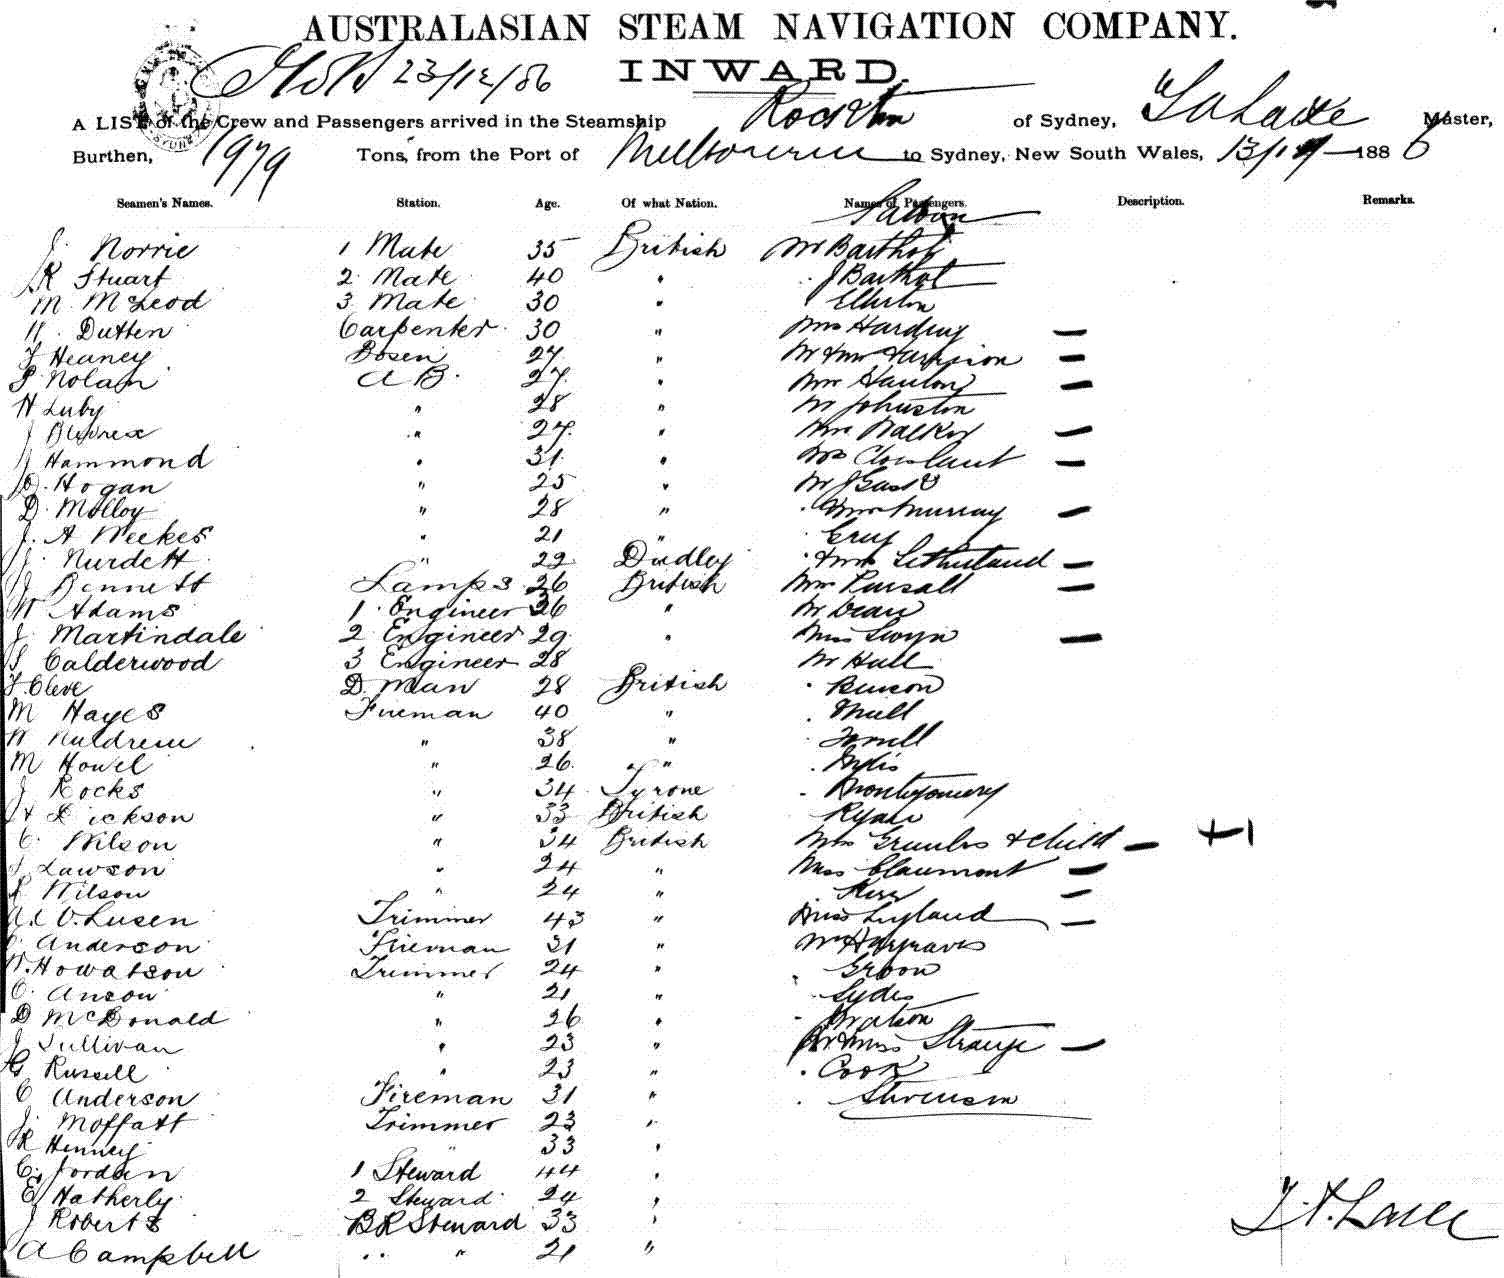 AUSTRALASIAN STEAM NAVIGATION COMPANY.
23/12/86 INWARD.
A LIST of the Crew and Passengers arrived in the Steamship of Sydney, Master,
Burthen, 1979 Tons, from the Port of Melbourne to Sydney, New South Wales, 1886
Seamen's Names. Station. Age. Of what Nation. Names of Passengers. Description. Remarks.
Saloon
J. Norrie 1 Mate 35 British Mr Barthol
R Stuart 2 Mate 40 " J Barthol
M McLeod 3 Mate 30 " Ellerton
H. Dutten Carpenter 30 " Mrs Harding —
F Heaney Bosen 27 " Mr & Mrs Harrison —
P Nolan A B. 27 " Mrs Hanlon —
H Luby " 28 " Mr Johnston
J " 27 " Mrs Walker —
J Hammond " 31 " Mrs —
D. Hogan " 25 " Mr J
D. Molloy " 28 " Mrs Murray —
J. A Weekes " 21 " Grey
J. Nurdett " 22 Dudley & Mrs Sutherland —
J Bennett Lamps 26 British Mrs Pursall —
W Adams 1 Engineer 36 " Mr Dean
J. Martindale 2 Engineer 29 " Miss Gwyn —
S Calderwood 3 Engineer 28 Mr Hull
F. Cleve D. Man 28 British Benson
M Hayes Fireman 40 " Thull
W " 38 "
M Howel " 26 "
J Rocks " 34 Tyrone Montgomery
Dickson " 33 British Ryan
C. Wilson " 34 British Mrs & Child — +1
Lawson " 24 " Miss Claumont —
Wilson " 24 " Kerr —
Lusen Trimmer 43 " Miss Leyland —
C Anderson Fireman 31 " Mr Hargraves
W. Howatson Trimmer 24 " Groon
C. Anson " 21 " Sydes
D McDonald " 26 " Watson
J Sullivan " 23 " Mr & Miss Strange —
G Russell " 23 " Cook
C Anderson Fireman 31 " Stevenson
J. Moffatt Trimmer 23 "
R Henney " 33 "
C. Jordan 1 Steward 44 "
E Hatherly 2 Steward 24 "
J Roberts B R Steward 33 "
A Campbell " " 21 "